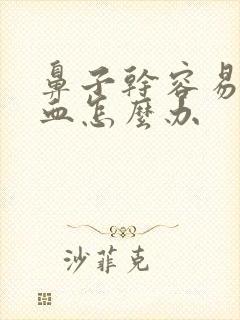 鼻子幹容易
血怎麼办
沙菲克